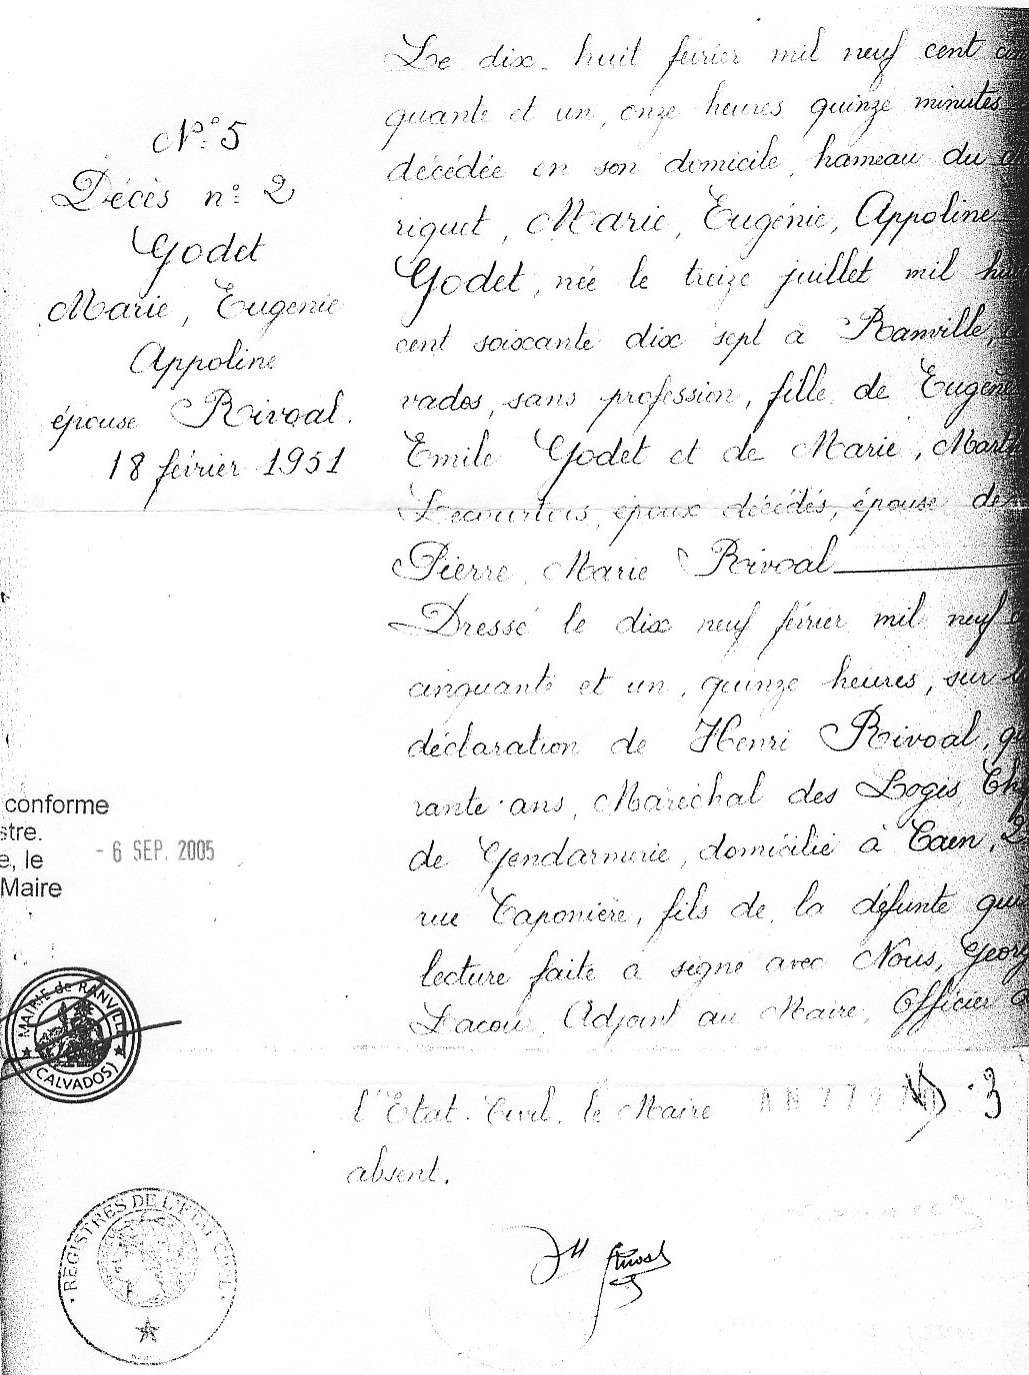 N° 5
Décès n° 2
Godet
Marie, Eugénie
Appoline
épouse Rivoal.
18 février 1951
Le dix huit février mil neuf cent cin
quante et un, onze heures quinze minutes
décédée en son domicile, hameau du
riquet, Marie, Eugénie, Appoline
Godet, née le treize juillet mil huit
cent soixante dix sept à Ranville,
vados, sans profession, fille de Eugène
Emile Godet et de Marie, Mart
Lecourtois, époux décédés, épouse de
Pierre, Marie Rivoal
Dressé le dix neuf février mil neuf c
cinquante et un, quinze heures, sur l
déclaration de Henri Rivoal, qu
rante ans, Maréchal des Logis Ch
de Gendarmerie, domicilié à Caen, 2
rue Caponière, fils de la défunte qui
lecture faite a signé avec Nous, Georg
Lacour, Adjoint au Maire, Officier d
l'Etat-Civil, le Maire
absent.
conforme
stre.
e, le - 6 SEP. 2005
Maire
MAIRIE de RANVILLE
(CALVADOS)
REGISTRES DE L'ETAT CIVIL